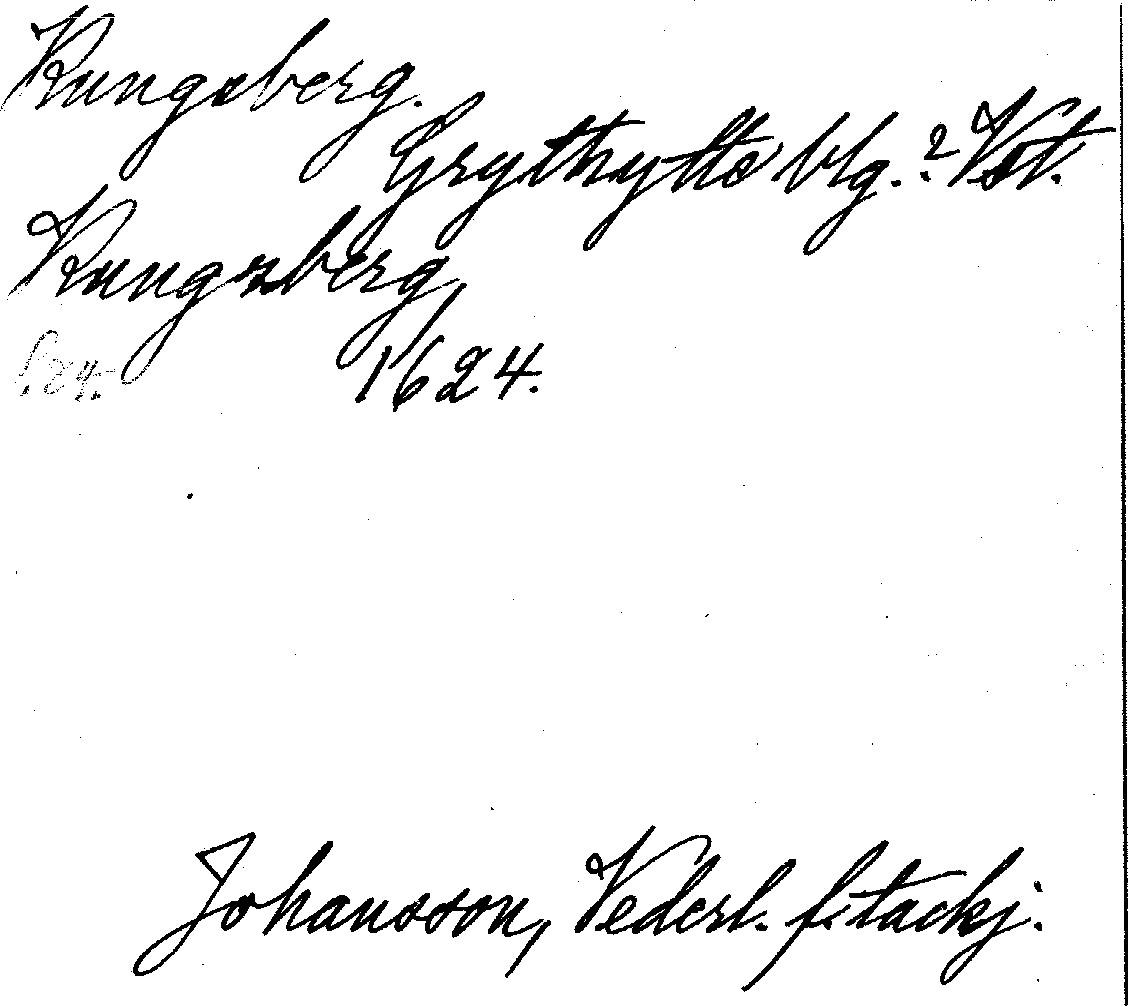 Kungsberg.
Grythytte blg.? Vst.
Kungsberg
1624.
Johansson, Vederl. f. tackj.